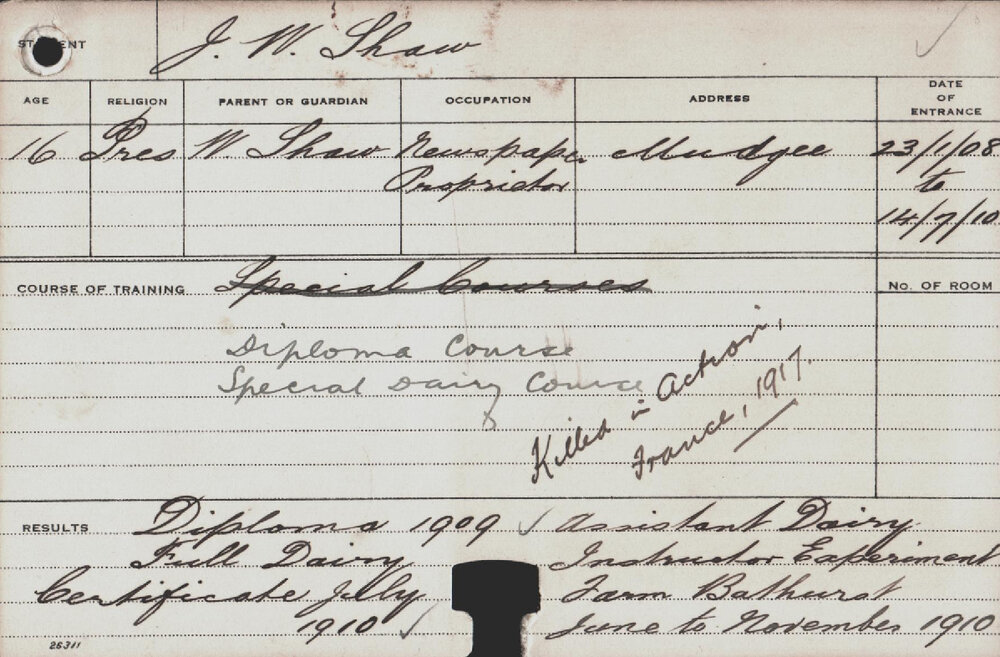 STUDENT J. W. Shaw
AGE RELIGION PARENT OR GUARDIAN OCCUPATION ADDRESS DATE OF ENTRANCE
16 Pres W. Shaw Newspaper Mudgee 23/1/08
Proprietor to
14/7/10
COURSE OF TRAINING Special Courses No. OF ROOM
Diploma Course
Special Dairy Course
Killed in Action,
France, 1917.
RESULTS Diploma 1909 ✓ Assistant Dairy
Full Dairy Instructor Experiment
Certificate July Farm Bathurst
1910 ✓ June to November 1910
26311